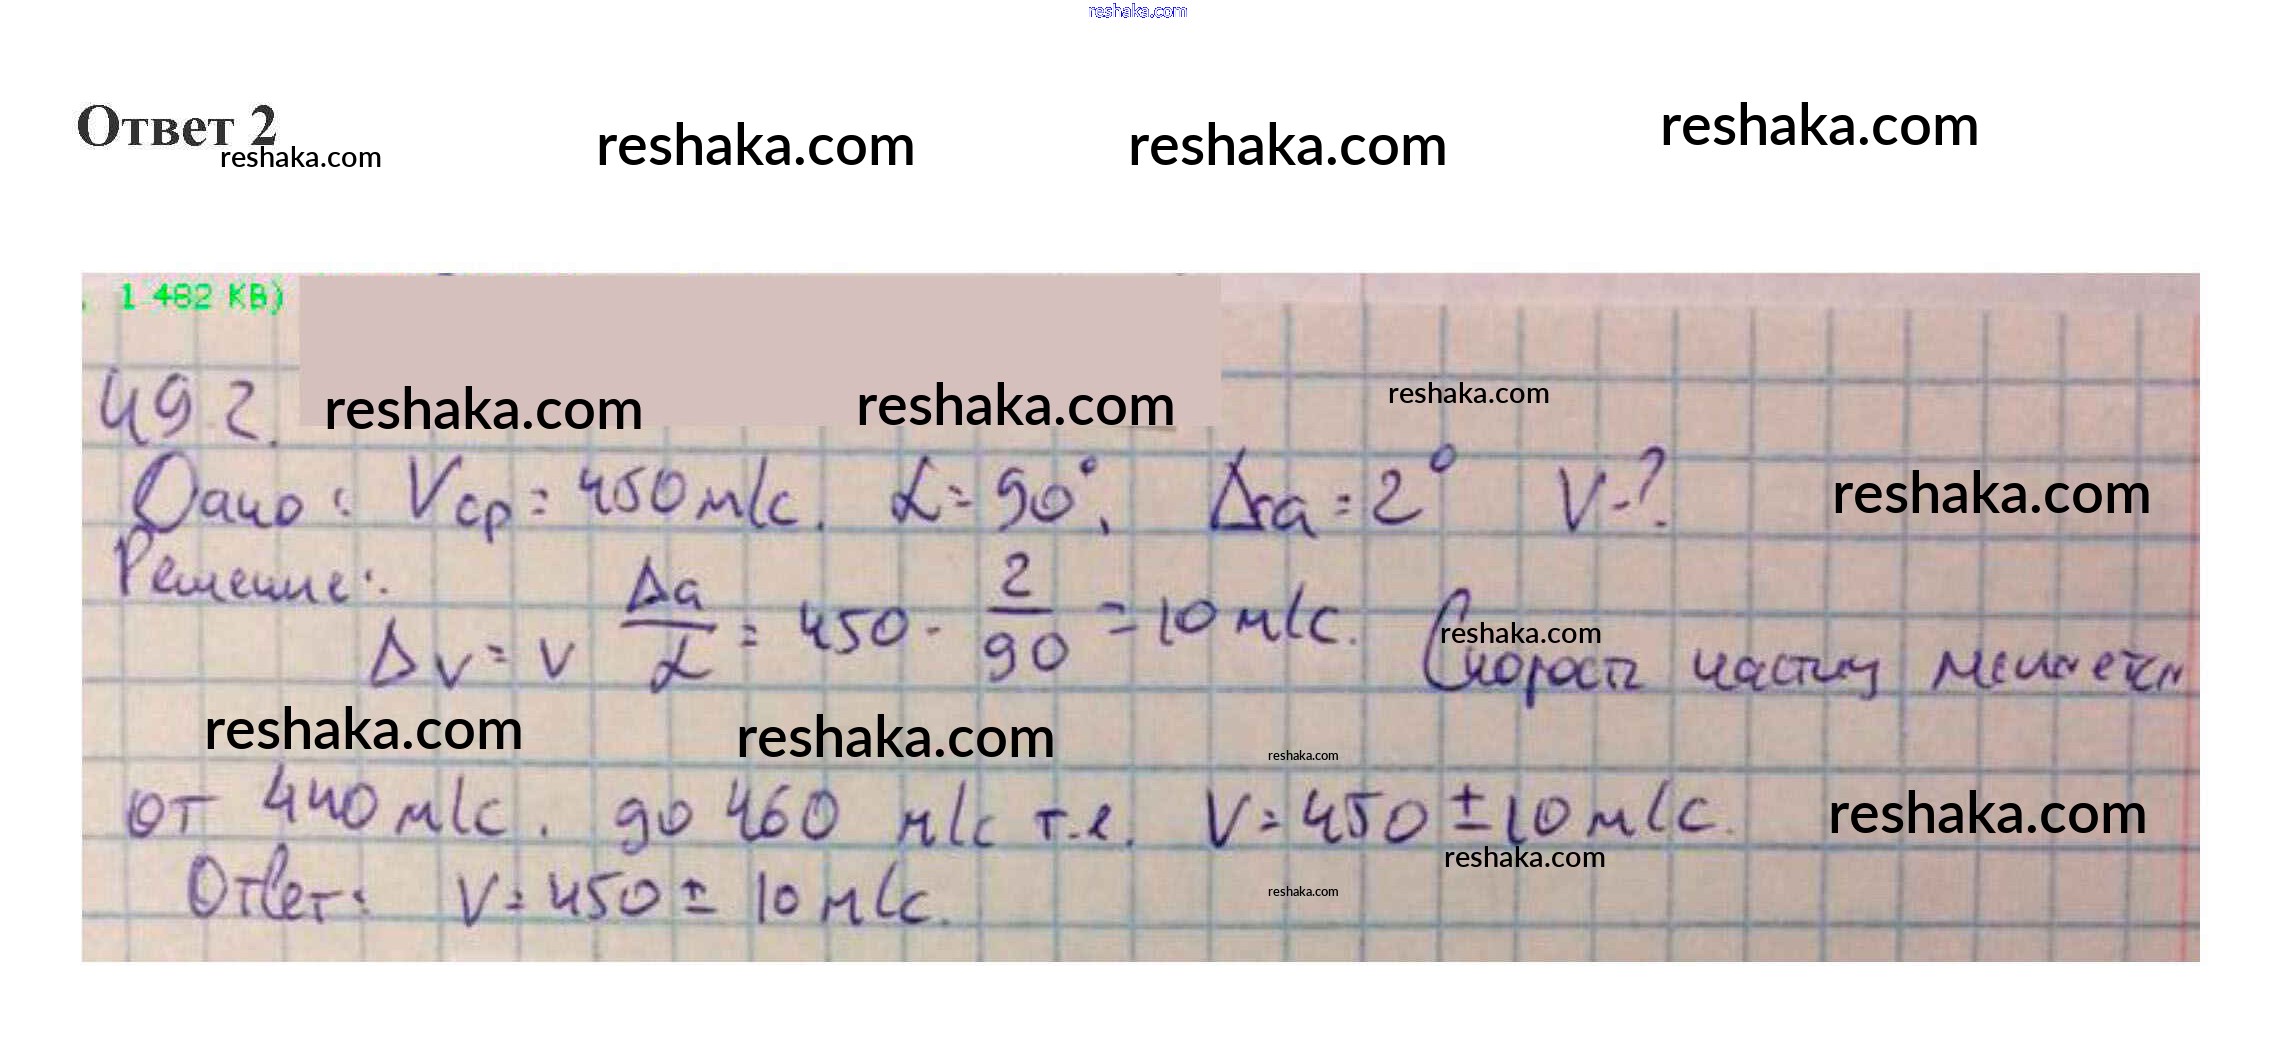 reshaka.com
Ответ 2
reshaka.com reshaka.com reshaka.com reshaka.com
1 482 KB)
492.
reshaka.com reshaka.com reshaka.com
Дано: Vср = 450 м/с. α = 90°, Δα = 2° V-?
reshaka.com
Решение:
Δv = v Δα/α = 450 · 2/90 = 10 м/с. Скорость частиц меняется
reshaka.com
reshaka.com reshaka.com reshaka.com
от 440 м/с. до 460 м/с т.е. V = 450 ± 10 м/с.
reshaka.com
reshaka.com
Ответ: V = 450 ± 10 м/с.
reshaka.com